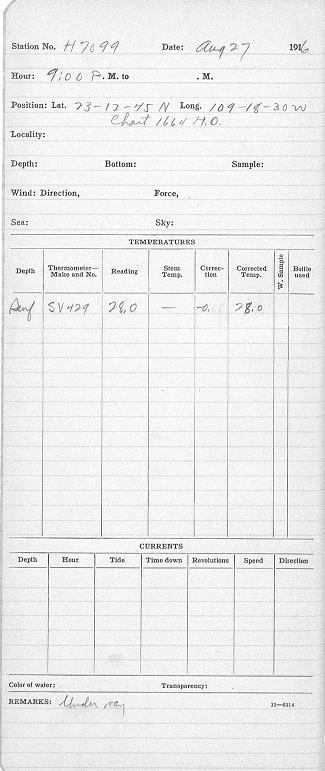 Station No. H7099 Date: Aug 27 1916
Hour: 9:00 P. M. to . M.
Position: Lat. 23-12-45 N Long. 109-18-30 W
Chart 1664 H.O.
Locality:
Depth: Bottom: Sample:
Wind: Direction, Force,
Sea: Sky:
TEMPERATURES
Depth Thermometer—Make and No. Reading Stem Temp. Correction Corrected Temp. W. Sample Bottle used
Surf SV429 28.0 — 28.0
CURRENTS
Depth Hour Tide Time down Revolutions Speed Direction
Color of water: Transparency:
REMARKS: Under way 11—6314